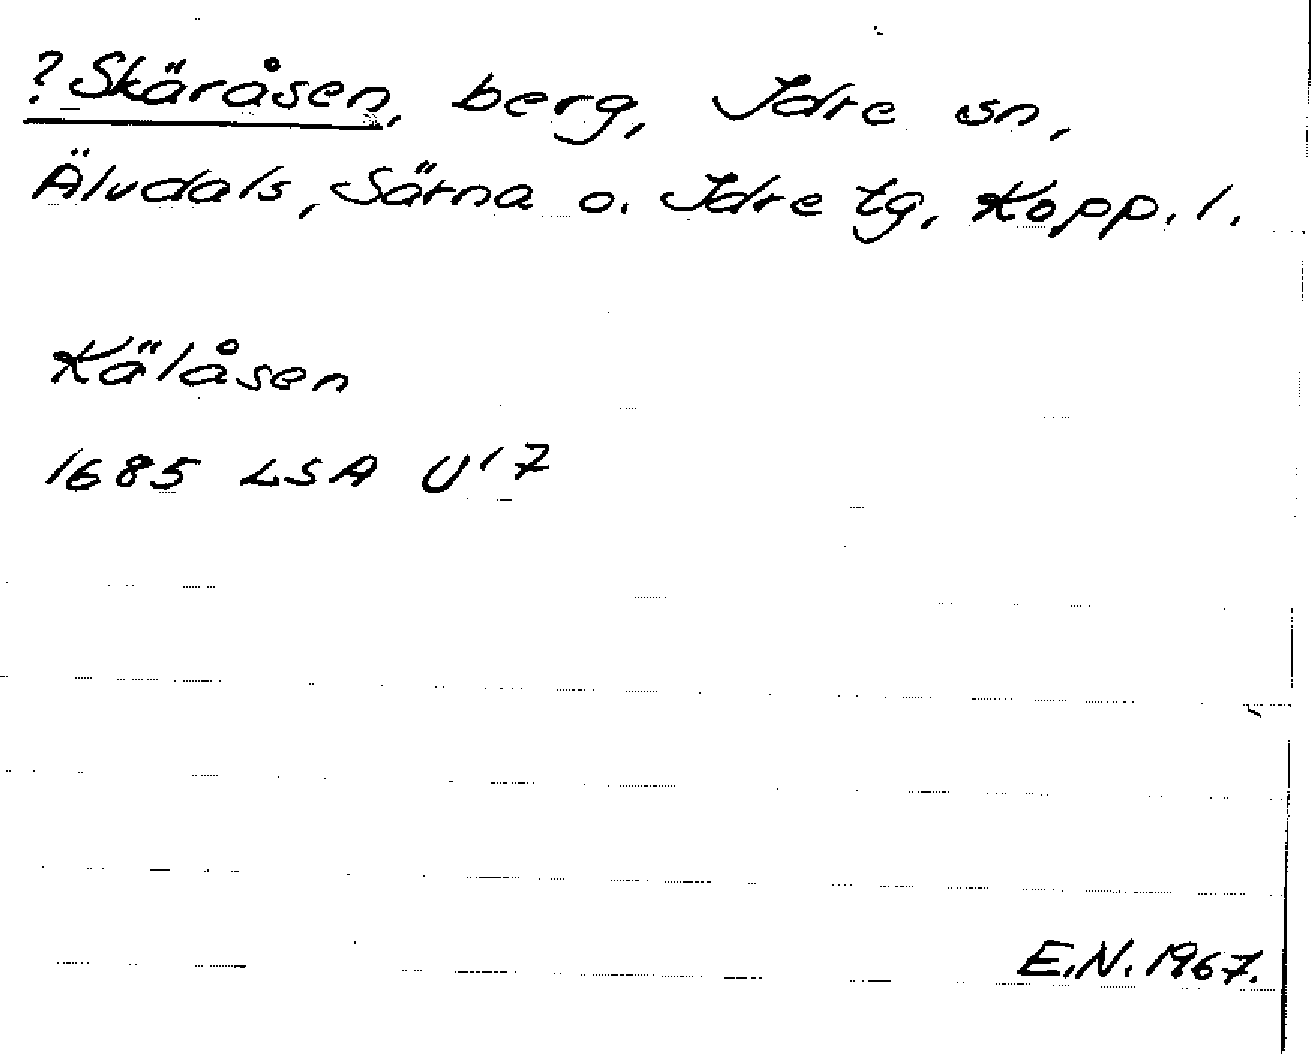 ?Skäråsen, berg, Idre sn,
Älvdals, Särna o. Idre tg, Kopp. l.
Kälåsen
1685 LSA U'7
E.N. 1967.